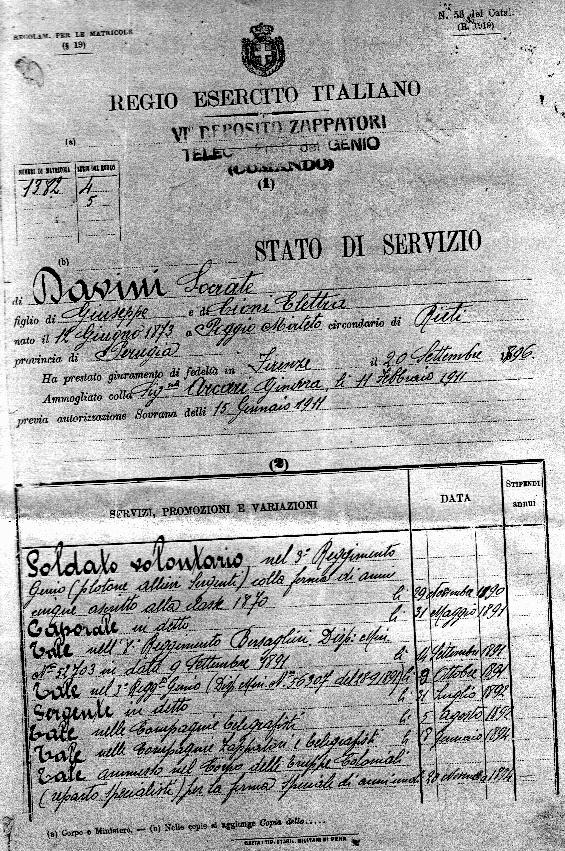 REGOLAM. PER LE MATRICOLE
(§ 19)
N. 58 del Catal.
(R. 1916)
REGIO ESERCITO ITALIANO
(a)
VI° DEPOSITO ZAPPATORI
del GENIO
(COMANDO)
(1)
NUMERI DI MATRICOLA
1382 4
5
(b)
STATO DI SERVIZIO
di Davini Socrate
figlio di Giuseppe e di Cioni Elettra
nato il 12 Giugno 1873 a Poggio Mirteto circondario di Rieti
provincia di Perugia
Ha prestato giuramento di fedeltà in Firenze il 20 Settembre 1896.
Ammogliato colla Sig.na Arcari Ginevra, li 11 Febbraio 1911
previa autorizzazione Sovrana delli 15 Gennaio 1911
(2)
SERVIZI, PROMOZIONI E VARIAZIONI DATA STIPENDI annui
Soldato volontario, nel 3° Reggimento
Genio (plotone allievi Sergenti) colla ferma di anni
cinque ascritto alla classe 1870 li 29 Novembre 1890
Caporale in detto li 31 Maggio 1891
Tale nell' Reggimento Bersaglieri Disp. Min.
N° 52703 in data 9 Settembre 1891 li Settembre 1891
Tale nel 3° Regg° Genio (Disp. Min. N° 56307 del 1891) li Ottobre 1891
Sergente in detto li 31 Luglio 1892
Tale nelle Compagnie telegrafisti li 5 Agosto 1892
Tale nelle Compagnie Zappatori e telegrafisti li 18 Gennaio 1894
Tale ammesso nel Corpo delle Truppe Coloniali
(reparto specialisti) per la ferma speciale di anni
(a) Corpo o Ministero. — (b) Nelle copie si aggiunge Copia dello.....